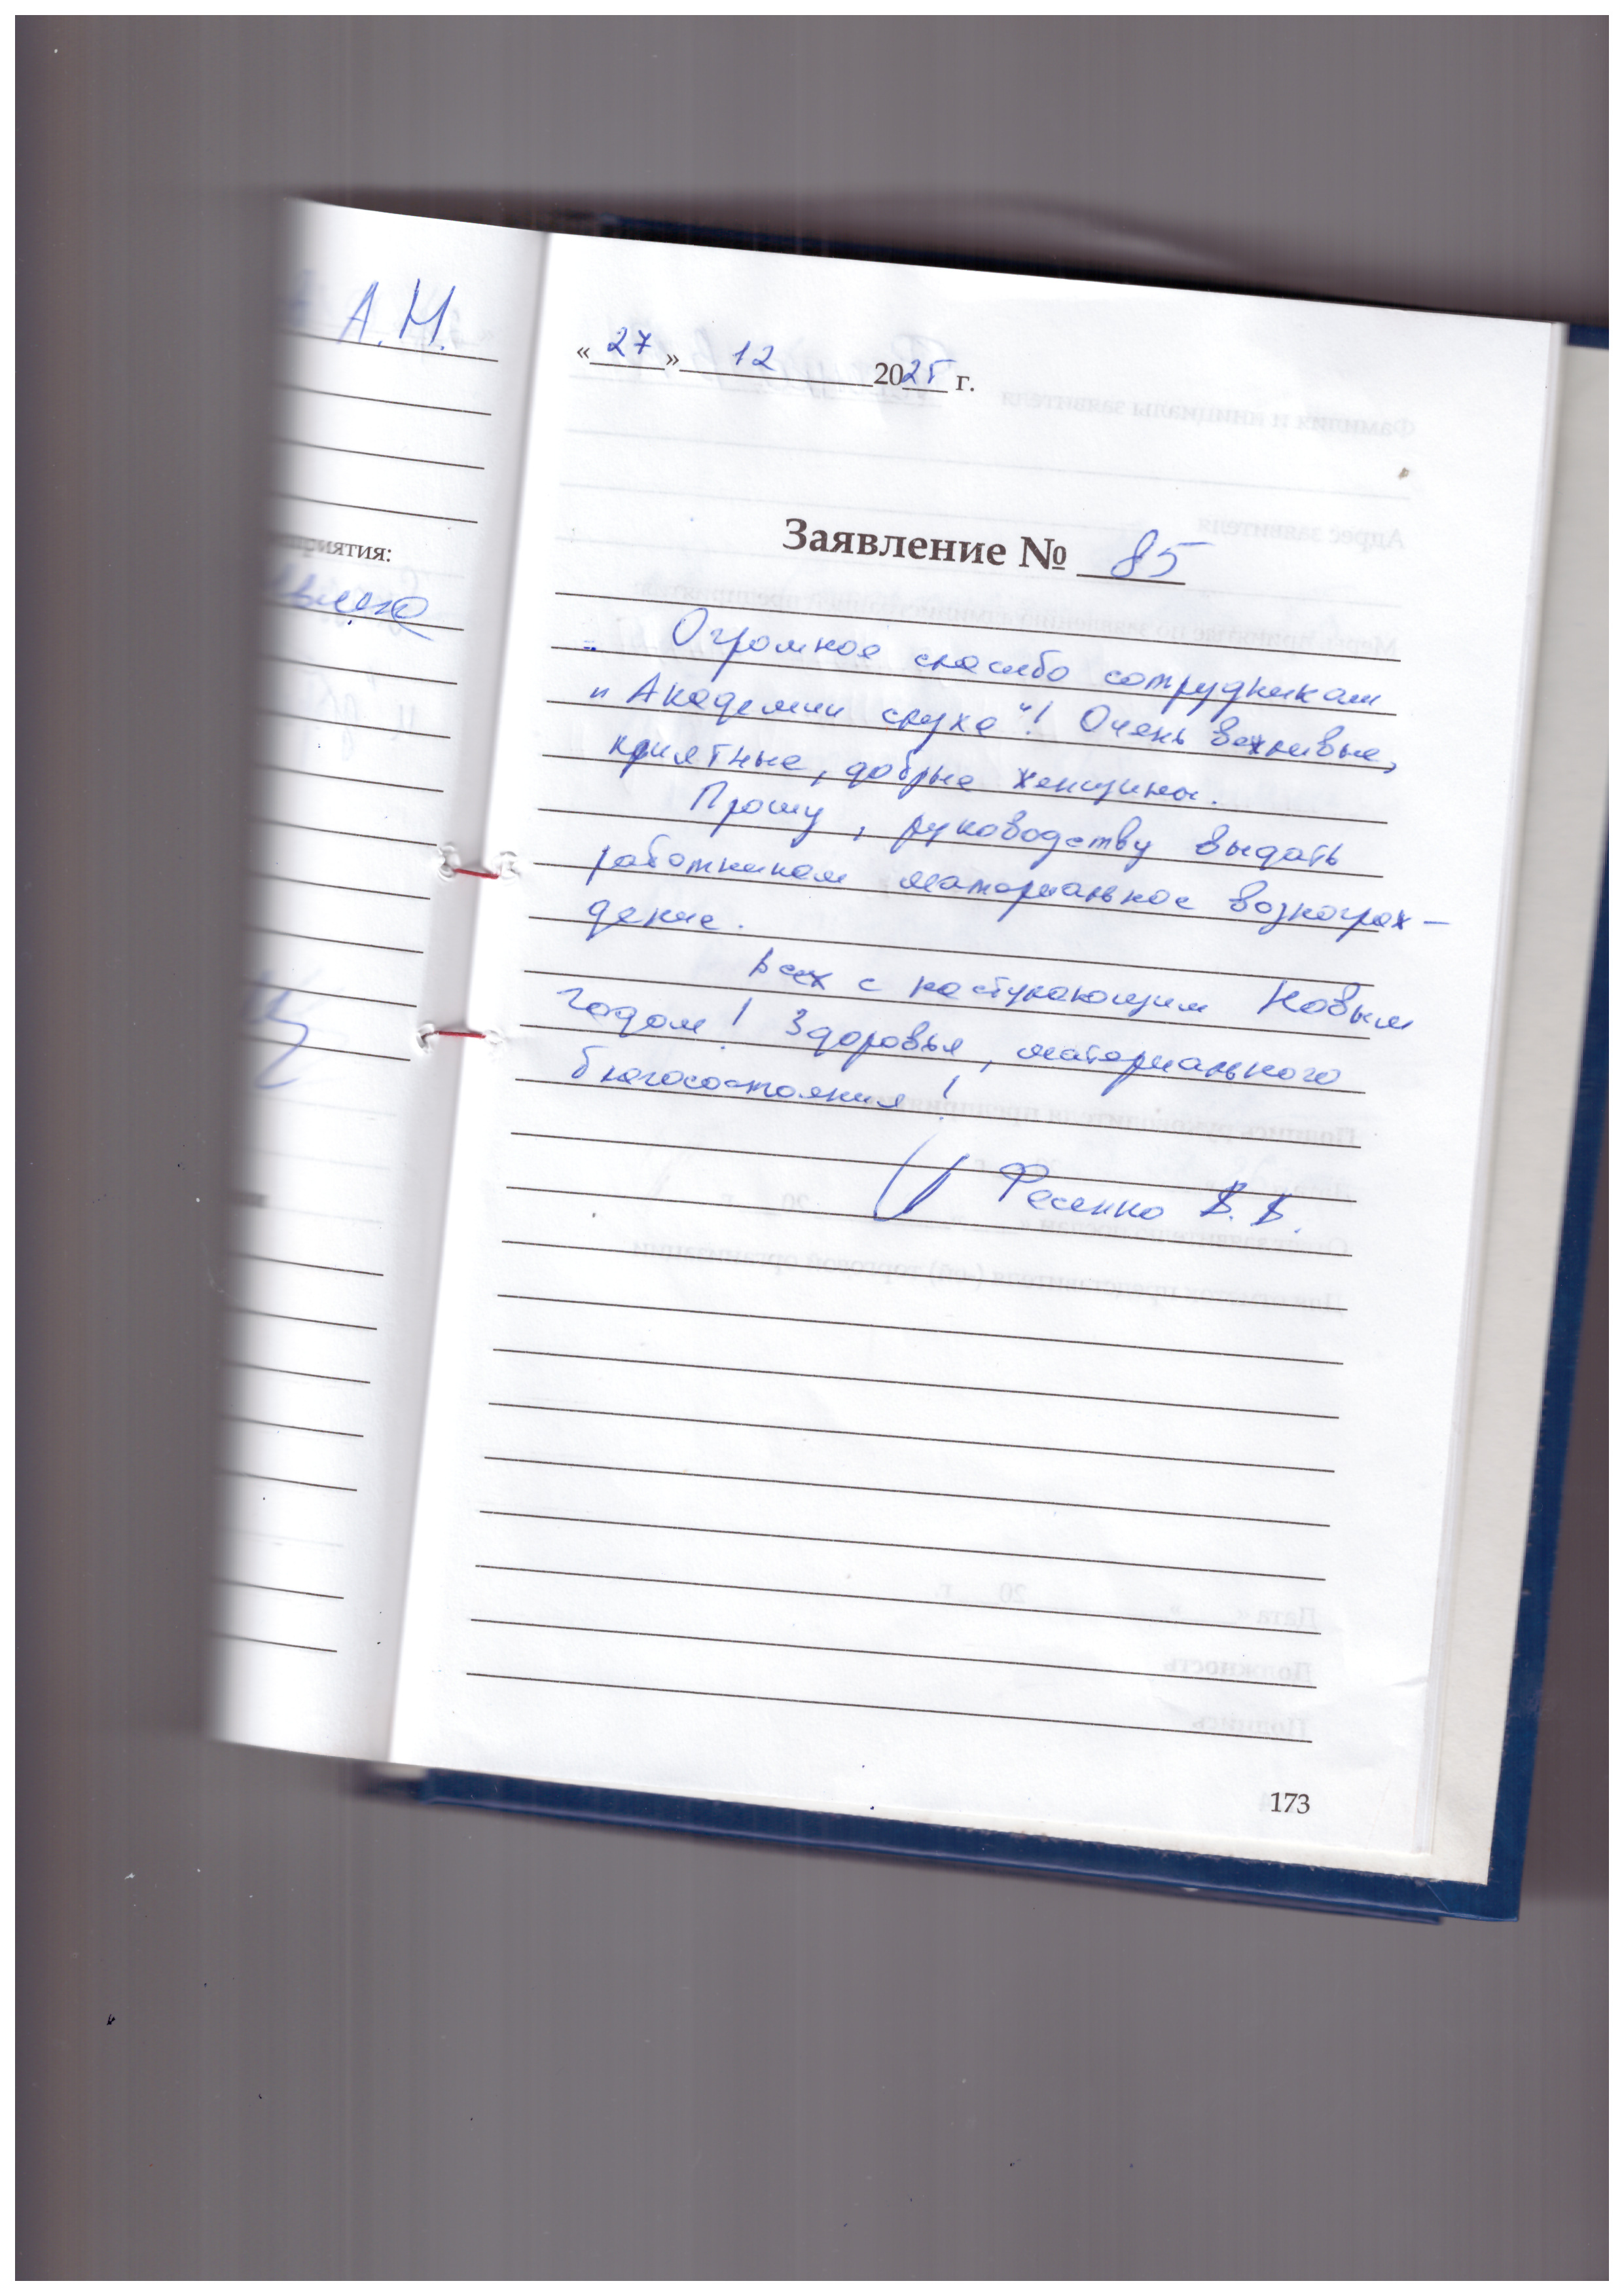 А.Н.
приятия:
«27» 12 2025 г.
Заявление № 85
Огромное спасибо сотрудникам
"Академии слуха"! Очень вежливые,
приятные, добрые женщины.
Прошу, руководству выдать
работникам материальное вознограж-
дение.
Всех с наступающим Новым
Годом! Здоровья, материального
благосостояния!
Фесенко В.В.
173